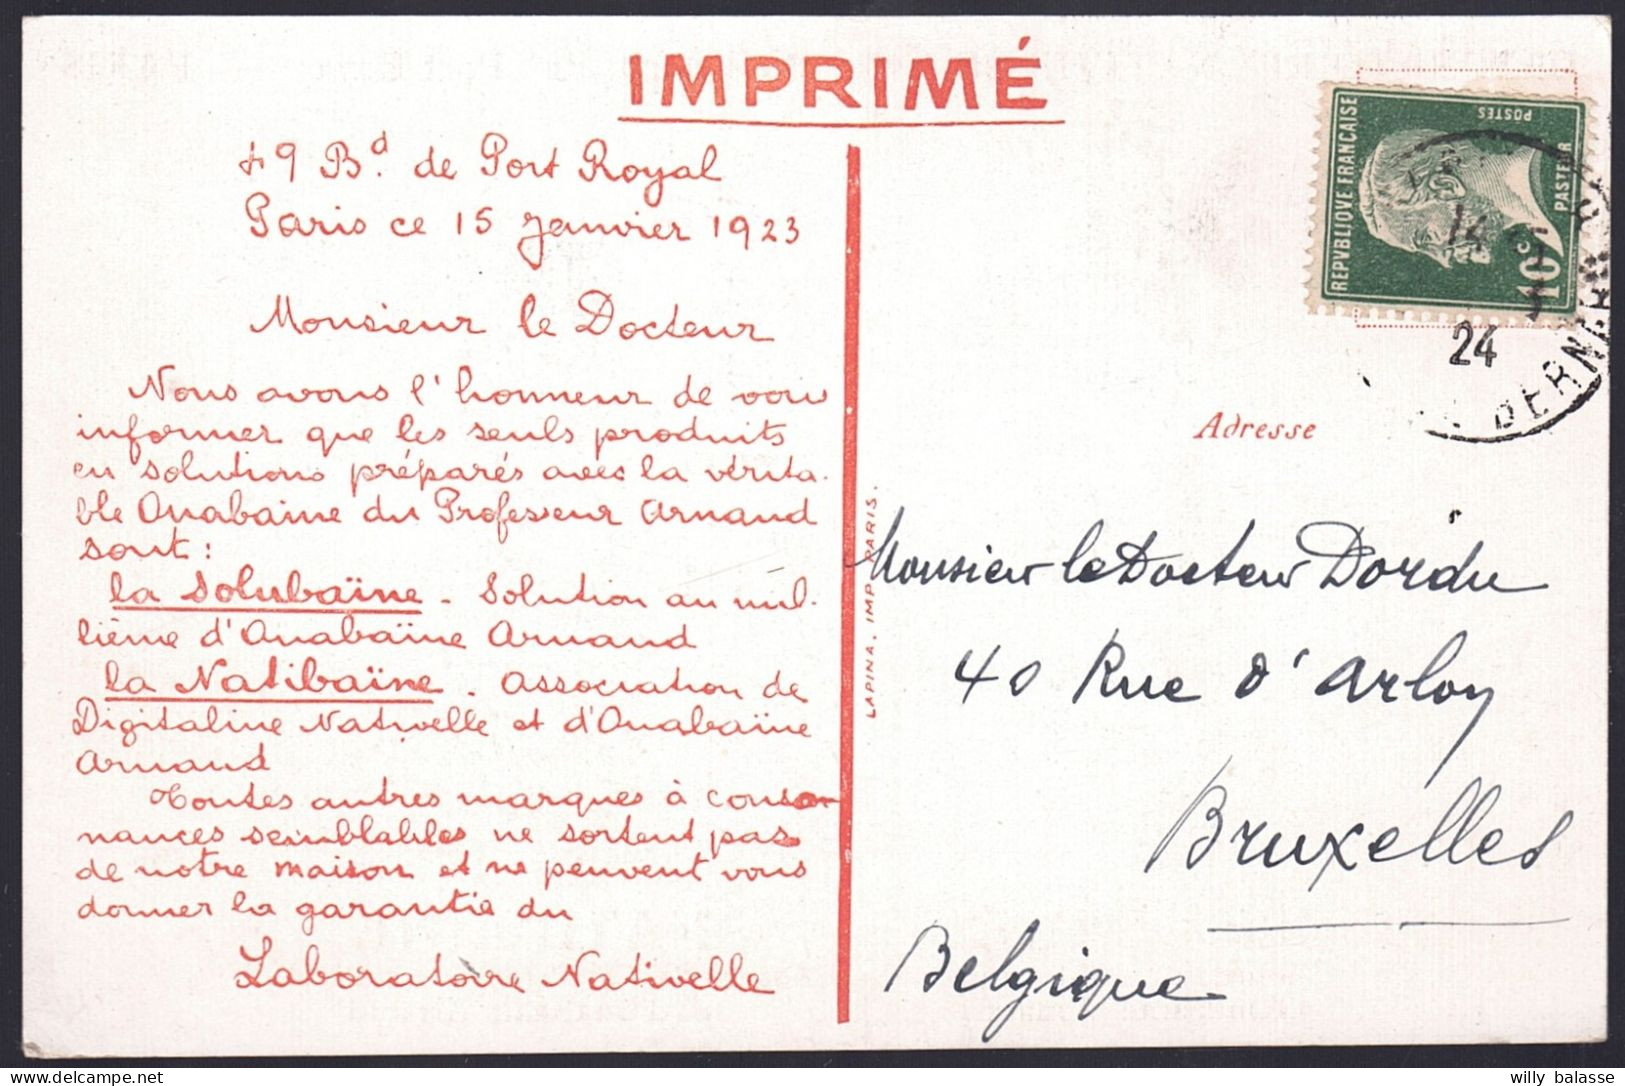 IMPRIMÉ
49 Bd. de Port Royal
Paris ce 15 Janvier 1923
Monsieur le Docteur
Nous avons l'honneur de vous
informer que les seuls produits
en solutions préparés avec la vérita-
ble Ouabaïne du Professeur Arnaud
sont :
la Solubaïne - Solution au mil-
lième d'Ouabaïne Arnaud
la Natibaïne - Association de
Digitaline Nativelle et d'Ouabaïne
Arnaud
Toutes autres marques à conso-
nances semblables ne sortent pas
de notre maison et ne peuvent vous
donner la garantie du
Laboratoire Nativelle
LAPINA. IMP. PARIS.
REPVBLIQVE FRANÇAISE
POSTES
PASTEUR
10c
14
24
Adresse
Monsieur le Docteur Dordu
40 Rue d'Arlon
Bruxelles
Belgique
willy balasse